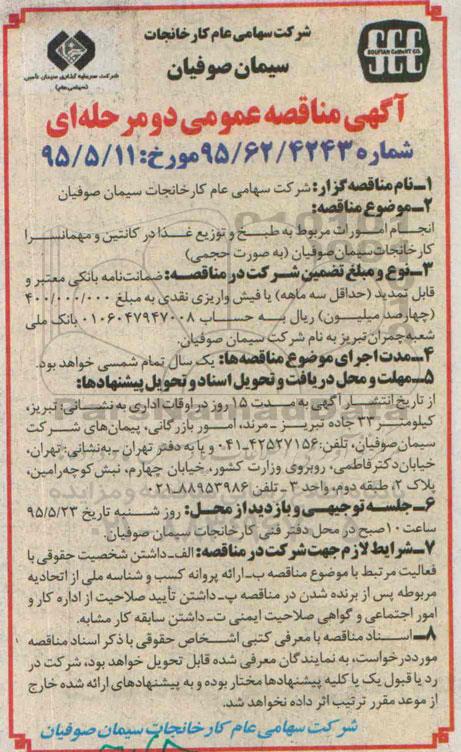 شرکت سهامی عام کارخانجات
سیمان صوفیان
SCC
SOUFIAN CEMENT CO.
شرکت سرمایه گذاری سیمان تأمین
(سهامی عام)
آگهی مناقصه عمومی دو مرحله‌ای
شماره ۹۵/۶۲/۴۲۴۳ مورخ: ۹۵/۵/۱۱
۱ـ نام مناقصه گزار: شرکت سهامی عام کارخانجات سیمان صوفیان
۲ـ موضوع مناقصه:
انجام امورات مربوط به طبخ و توزیع غذا در کانتین و مهمانسرا
کارخانجات سیمان صوفیان (به صورت حجمی)
۳ـ نوع و مبلغ تضمین شرکت در مناقصه: ضمانت‌نامه بانکی معتبر و
قابل تمدید (حداقل سه ماهه) یا فیش واریزی نقدی به مبلغ ۴۰۰/۰۰۰/۰۰۰
(چهارصد میلیون) ریال به حساب ۰۱۰۶۰۴۷۹۴۷۰۰۸ بانک ملی
شعبه چمران تبریز به نام شرکت سیمان صوفیان.
۴ـ مدت اجرای موضوع مناقصه‌ها: یک سال تمام شمسی خواهد بود.
۵ـ مهلت و محل دریافت و تحویل اسناد و تحویل پیشنهادها:
از تاریخ انتشار آگهی به مدت ۱۵ روز در اوقات اداری به نشانی: تبریز،
کیلومتر ۳۳ جاده تبریز ـ مرند، امور بازرگانی، پیمان‌های شرکت
سیمان صوفیان، تلفن: ۴۲۵۲۷۱۵۶-۰۴۱ و یا به دفتر تهران ـ به‌نشانی: تهران،
خیابان دکتر فاطمی، روبروی وزارت کشور، خیابان چهارم، نبش کوچه رامین،
پلاک ۲، طبقه دوم، واحد ۳ ـ تلفن ۸۸۹۵۳۹۸۶-۰۲۱
۶ـ جلسه توجیهی و بازدید از محل: روز شنبه تاریخ ۹۵/۵/۲۳
ساعت ۱۰ صبح در محل دفتر فنی کارخانجات سیمان صوفیان.
۷ـ شرایط لازم جهت شرکت در مناقصه: الف ـ داشتن شخصیت حقوقی با
فعالیت مرتبط با موضوع مناقصه ب ـ ارائه پروانه کسب و شناسه ملی از اتحادیه
مربوطه پس از برنده شدن در مناقصه پ ـ داشتن تأیید صلاحیت از اداره کار و
امور اجتماعی و گواهی صلاحیت ایمنی ت ـ داشتن سابقه کار مشابه.
۸ـ اسناد مناقصه با معرفی کتبی اشخاص حقوقی با ذکر اسناد مناقصه
مورد درخواست، به نمایندگان معرفی شده قابل تحویل خواهد بود، شرکت در
رد یا قبول یک یا کلیه پیشنهادها مختار بوده و به پیشنهادهای ارائه شده خارج
از موعد مقرر ترتیب اثر داده نخواهد شد.
شرکت سهامی عام کارخانجات سیمان صوفیان